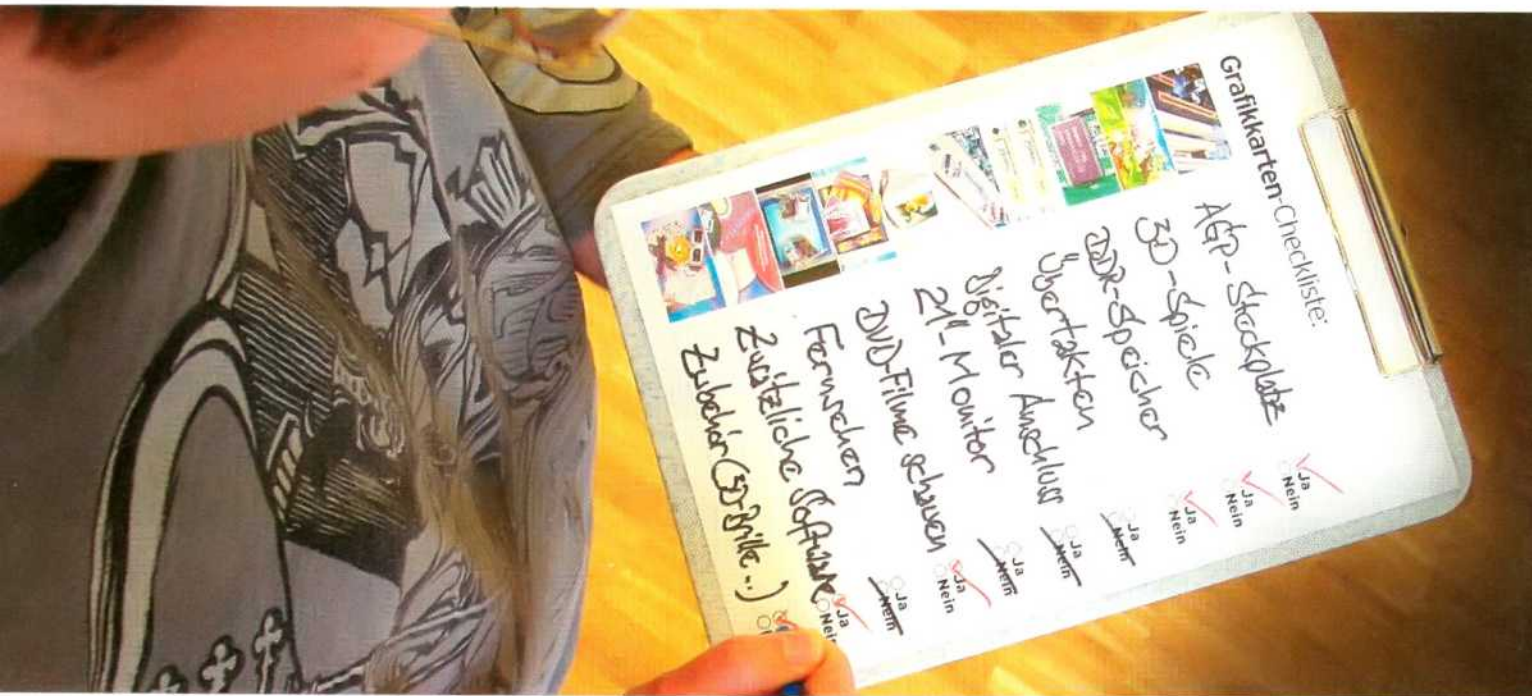 Grafikkarten-Checkliste:
AGP-Steckplatz
Ja
Nein
3D-Spiele
Ja
Nein
DDR-Speicher
Ja
Nein
Übertakten
Ja
Nein
Digitaler Anschluss
Ja
Nein
21"-Monitor
Ja
Nein
DVD-Filme schauen
Ja
Nein
Fernsehen
Ja
Nein
Zusätzliche Software
Ja
Zubehör (3D-Brille..)